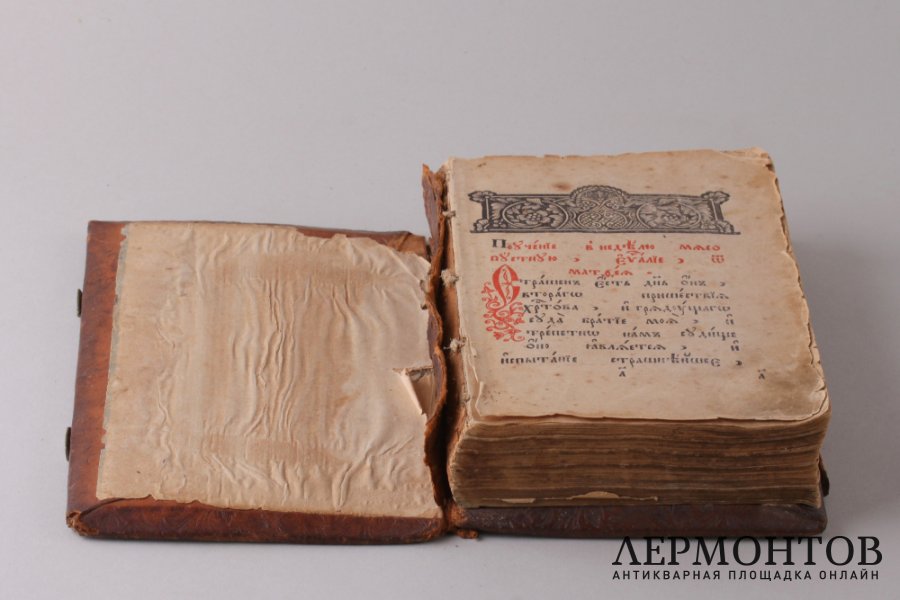 Поуче́нїе в недѣ́лю мѧсо
пꙋ́стнꙋю , еѵⷢ҇а́лїе , ѿ
матѳе́ѧ .
Стра́шенъ е҆́сть дн҃ь ѻ҆́нъ ,
вто́рагѡ прише́ствїѧ
хрⷭ҇то́ва , и҆ грѧдꙋ́щагѡ
сꙋда̀ бра́тїе моѧ̀ , и҆
тре́петно на́мъ сꙋди́ще
ѻ҆́но ꙗ҆влѧ́етсѧ , и҆
и҆спыта́нїе стра́шнѣйшее ,
а҃ а҃
ЛЕРМОНТОВ
АНТИКВАРНАЯ ПЛОЩАДКА ОНЛАЙН